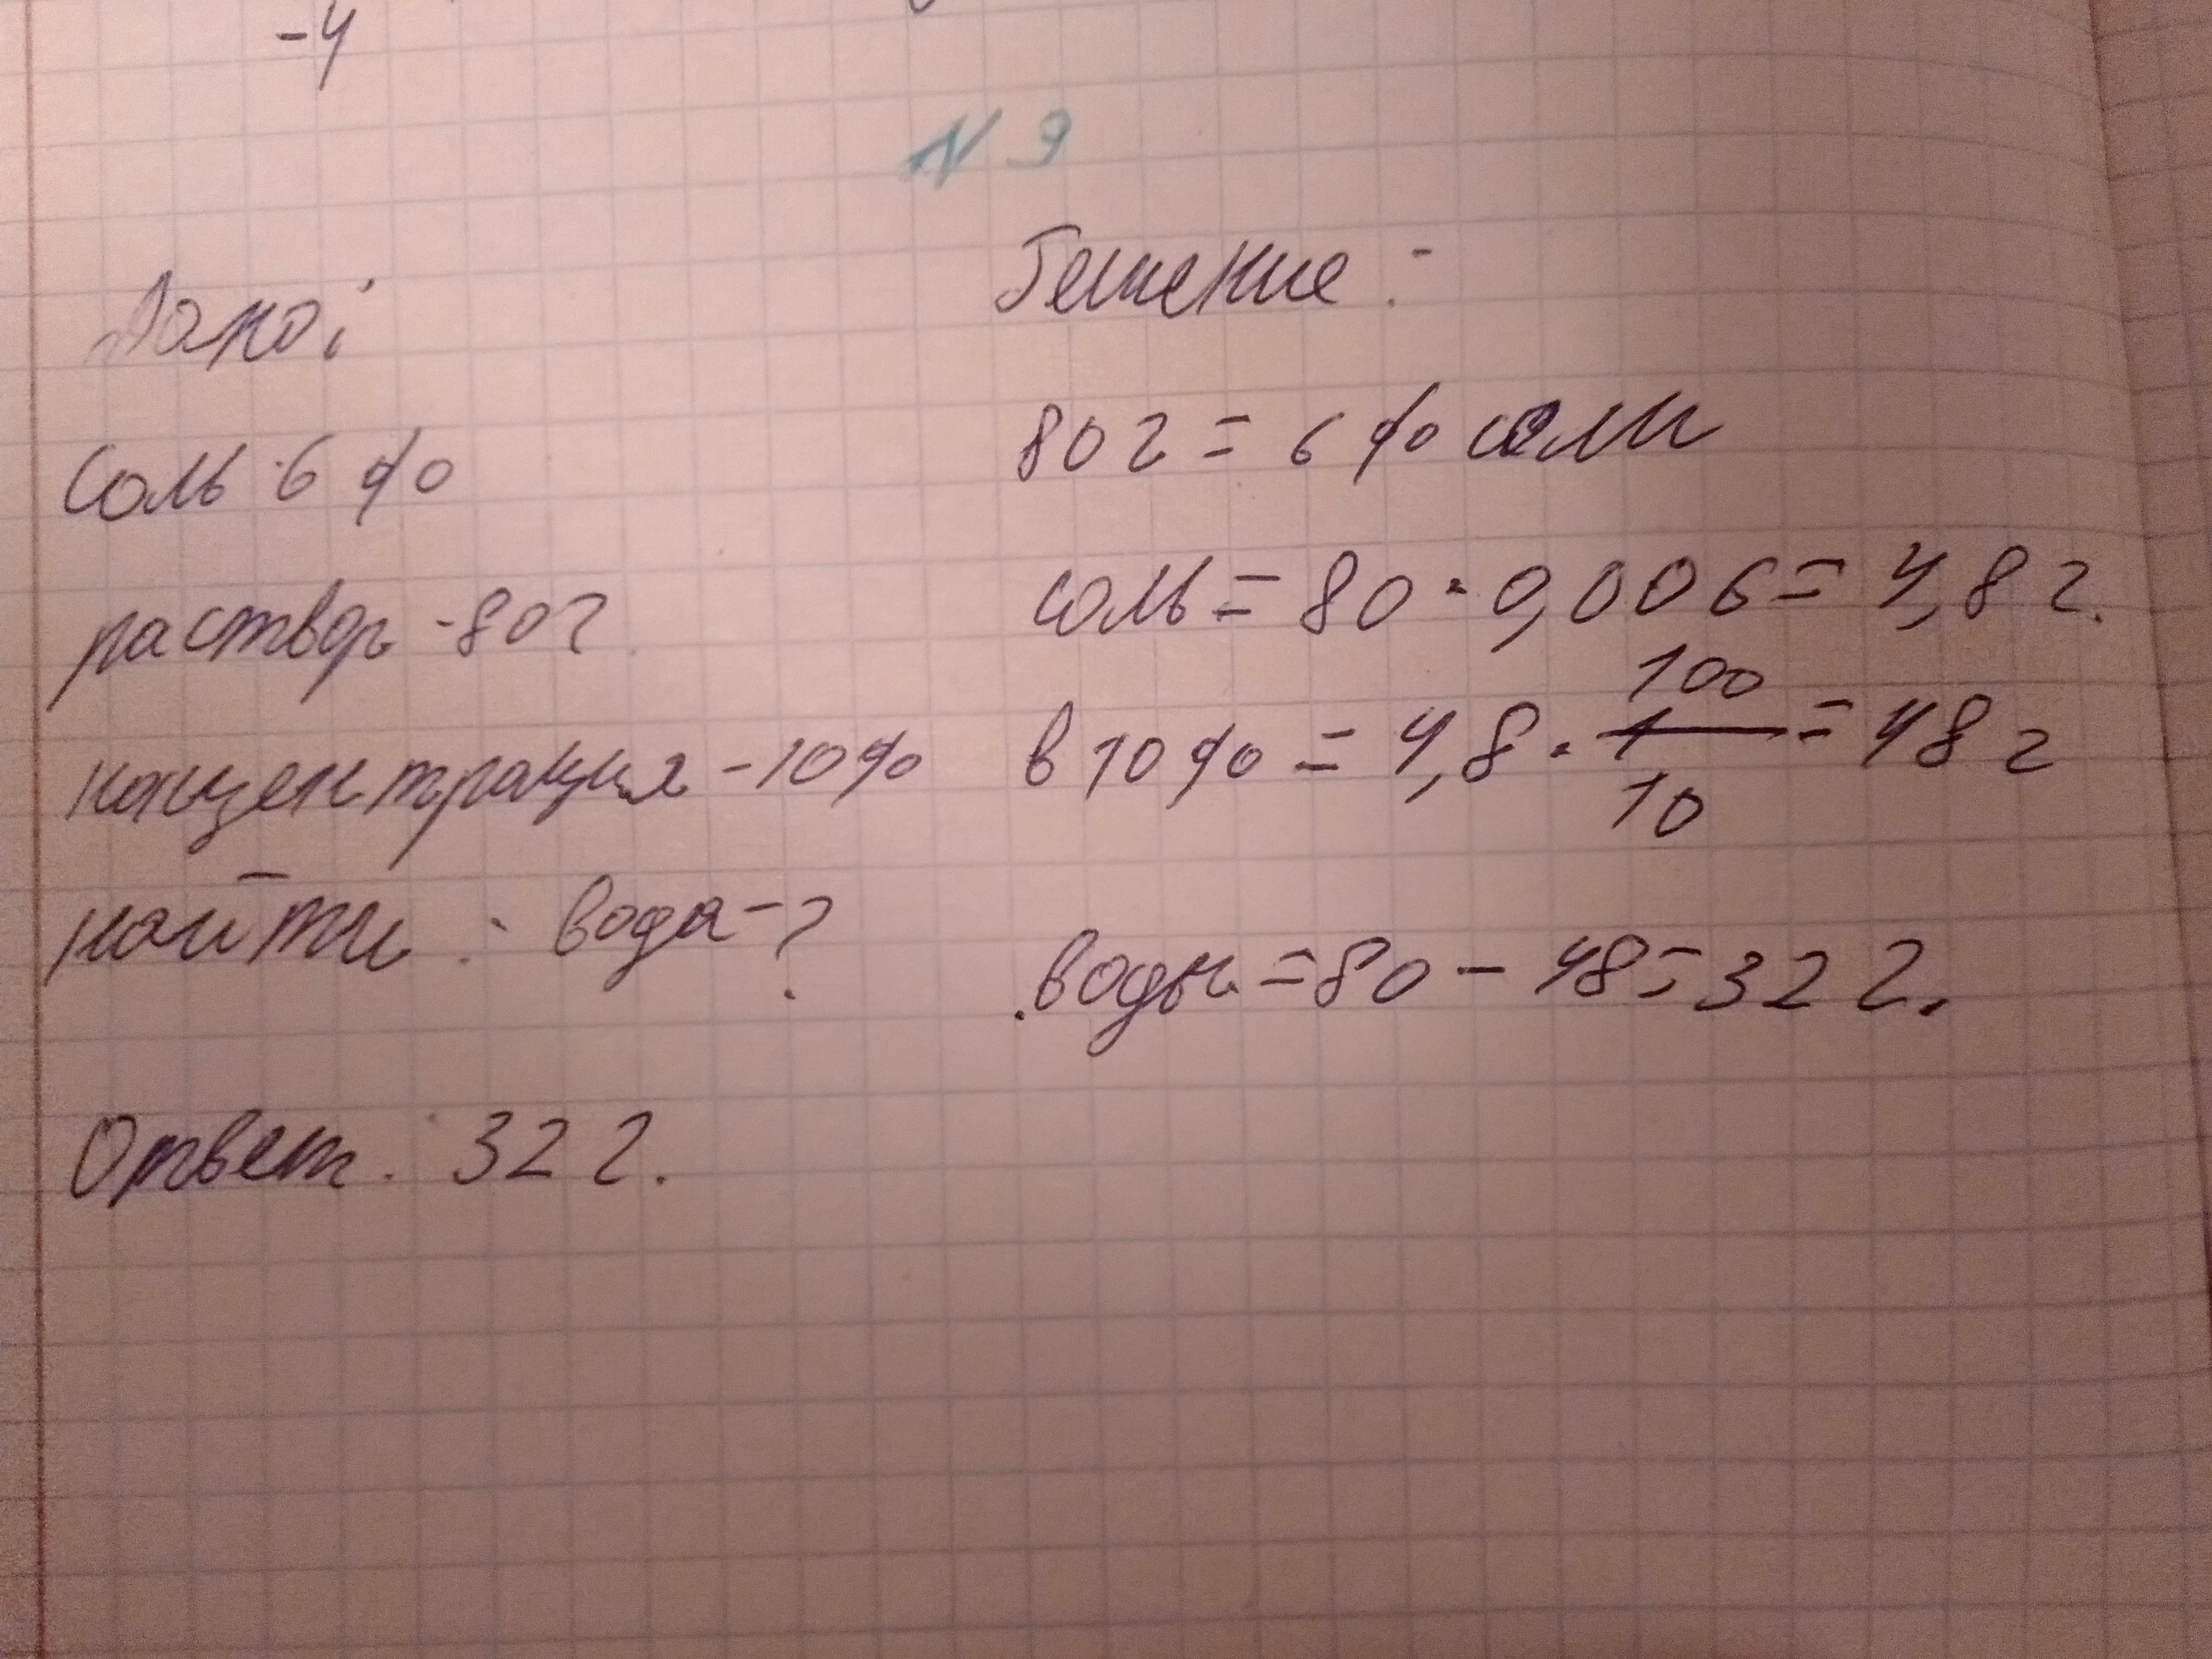 -4
N 9
Дано:
Соль 6 %
раствор - 80 г
концентрация - 10 %
найти : вода - ?
Ответ. 32 г.
Решение :
80 г = 6 % соли
соль = 80 · 0,006 = 4,8 г.
в 10 % = 4,8 · 100/10 = 48 г
воды = 80 - 48 = 32 г.